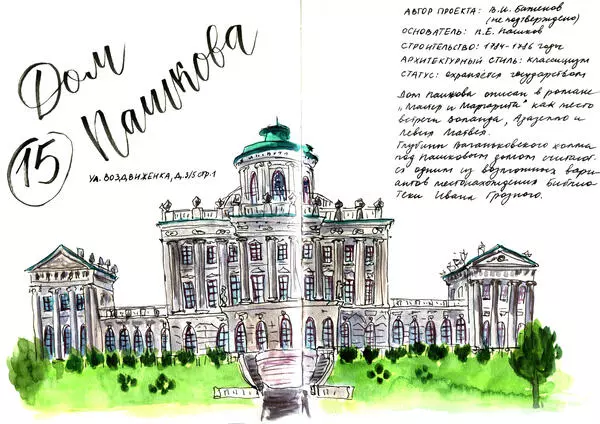 Дом
Пашкова
15
ул. Воздвиженка, д.3/5 стр.1
Автор проекта: В.И. Баженов
(не подтверждено)
Основатель: П.Е. Пашков
Строительство: 1784-1786 годы
Архитектурный стиль: классицизм
Статус: охраняется государством
Дом Пашкова описан в романе
„Мастер и Маргарита" как место
встречи Воланда, Азазелло и
Левия Матвея.
Глубины Ваганьковского холма
под Пашковым домом считают-
ся одним из возможных вари-
антов местонахождения библио-
теки Ивана Грозного.